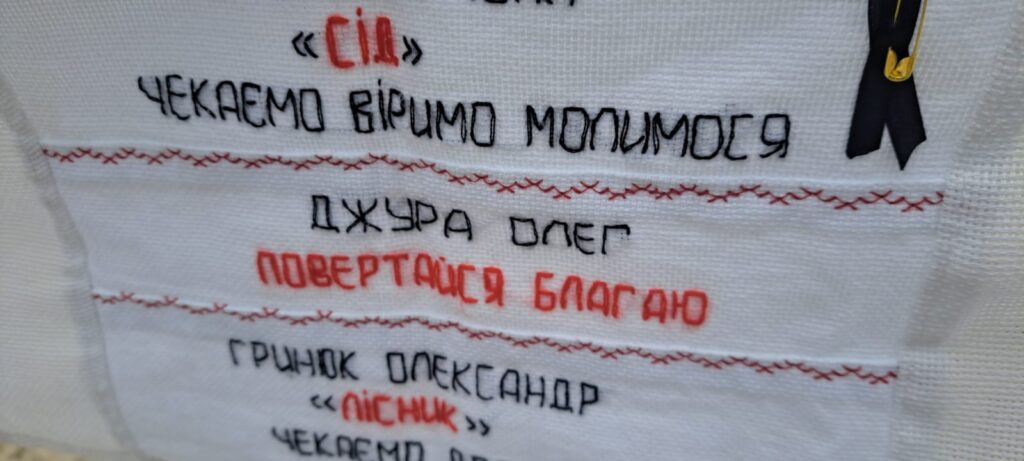 «СІД»
ЧЕКАЄМО ВІРИМО МОЛИМОСЯ
ДЖУРА ОЛЕГ
ПОВЕРТАЙСЯ БЛАГАЮ
ГРИНЮК ОЛЕКСАНДР
«ЛІСНИК»
ЧЕКАЄМО